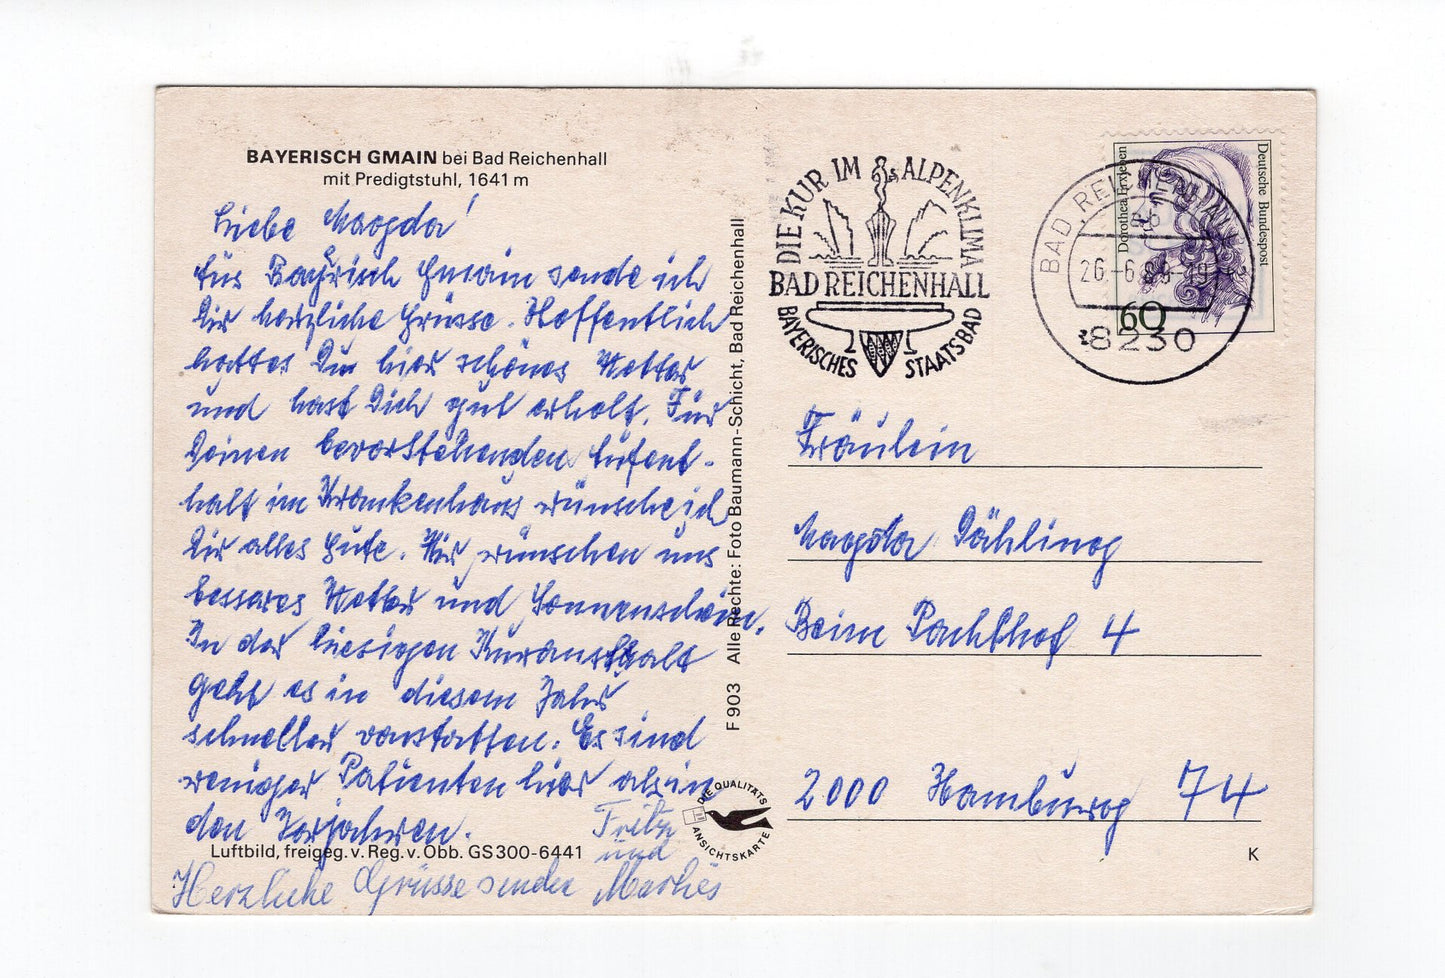 BAYERISCH GMAIN bei Bad Reichenhall
mit Predigtstuhl, 1641 m
Liebe Magda!
Aus Bayrisch Gmain sende ich
Dir herzliche Grüsse. Hoffentlich
hattes Du hier schönes Wetter
und hast Dich gut erholt. Für
Deinen bevorstehenden Aufent-
halt im Krankenhaus wünsche ich
Dir alles Gute. Wir wünschen uns
besseres Wetter und Sonnenschein.
In der hiesigen Kuranstalt
geht es in diesem Jahr
schneller vonstatten. Es sind
weniger Patienten hier als in
den Vorjahren.
Fritz
und
Herzliche Grüsse sendet
Luftbild, freigeg. v. Reg. v. Obb. GS 300-6441
F 903 Alle Rechte: Foto Baumann-Schicht, Bad Reichenhall
DIE QUALITÄTS
ANSICHTSKARTE
DIE KUR IM ALPENKLIMA
BAD REICHENHALL
BAYERISCHES STAATSBAD
BAD REICHENHALL
26.-6.
8230
Deutsche Bundespost
Dorothea Erxleben
60
Fräulein
Magda Dähling
Beim Pachthof 4
2000 Hamburg 74
K